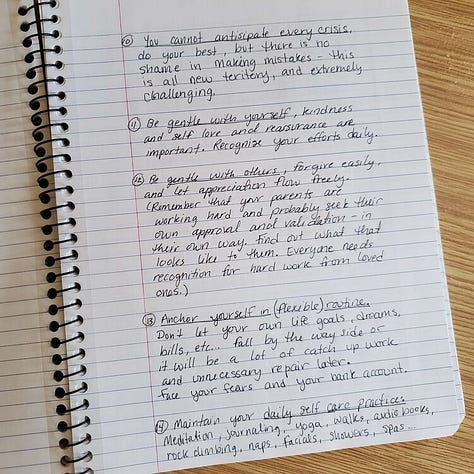 10 You cannot antisipate every crisis,
do your best, but there is no
shame in making mistakes - this
is all new teritory, and extremely
challenging.
11 Be gentle with yourself, kindness
and self love and reassurance are
important. Recognize your efforts daily.
12 Be gentle with others, forgive easily,
and let appreciation flow freely.
(Remember that your parents are
working hard and probably seek their
own approval and validation - in
their own way. Find out what that
looks like to them. Everyone needs
recognition for hard work from loved
ones.)
13 Anchor yourself in (flexible) routine.
Don't let your own life goals, dreams,
bills, etc... fall by the way side or
it will be a lot of catch up work
and unnecessary repair later.
Face your fears and your bank account.
14 Maintain your daily self care practice.
Meditation, journaling, yoga, walks, audio books,
rock climbing, naps, facials, showers, spas...